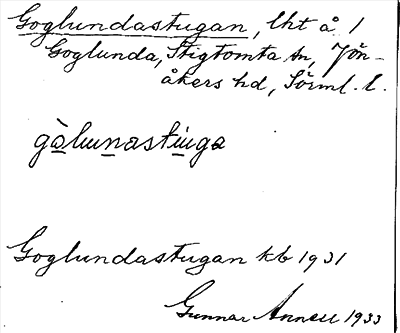 Goglundastugan, lht å 1
Goglunda, Stigtomta sn, Jön-
åkers hd, Sörml. l.
gòlunastuga
Goglundastugan kb 1931
Gunnar Annell 1933